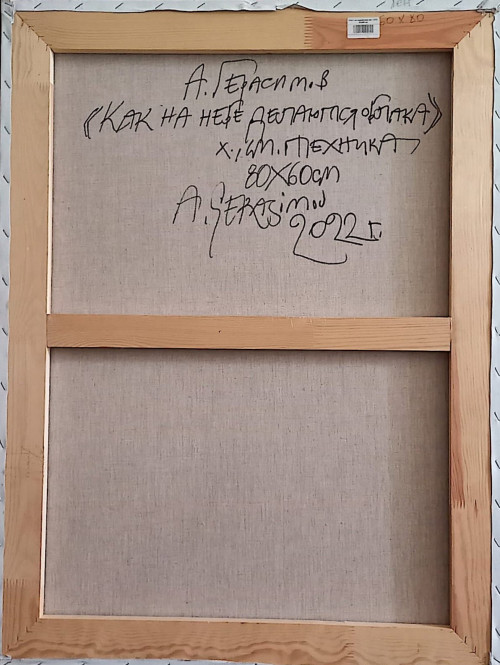 60X80
А. Герасимов
《Как на небе делаются облака》
х., см. техника
80X60см
A. Gerasimov
2022 г.